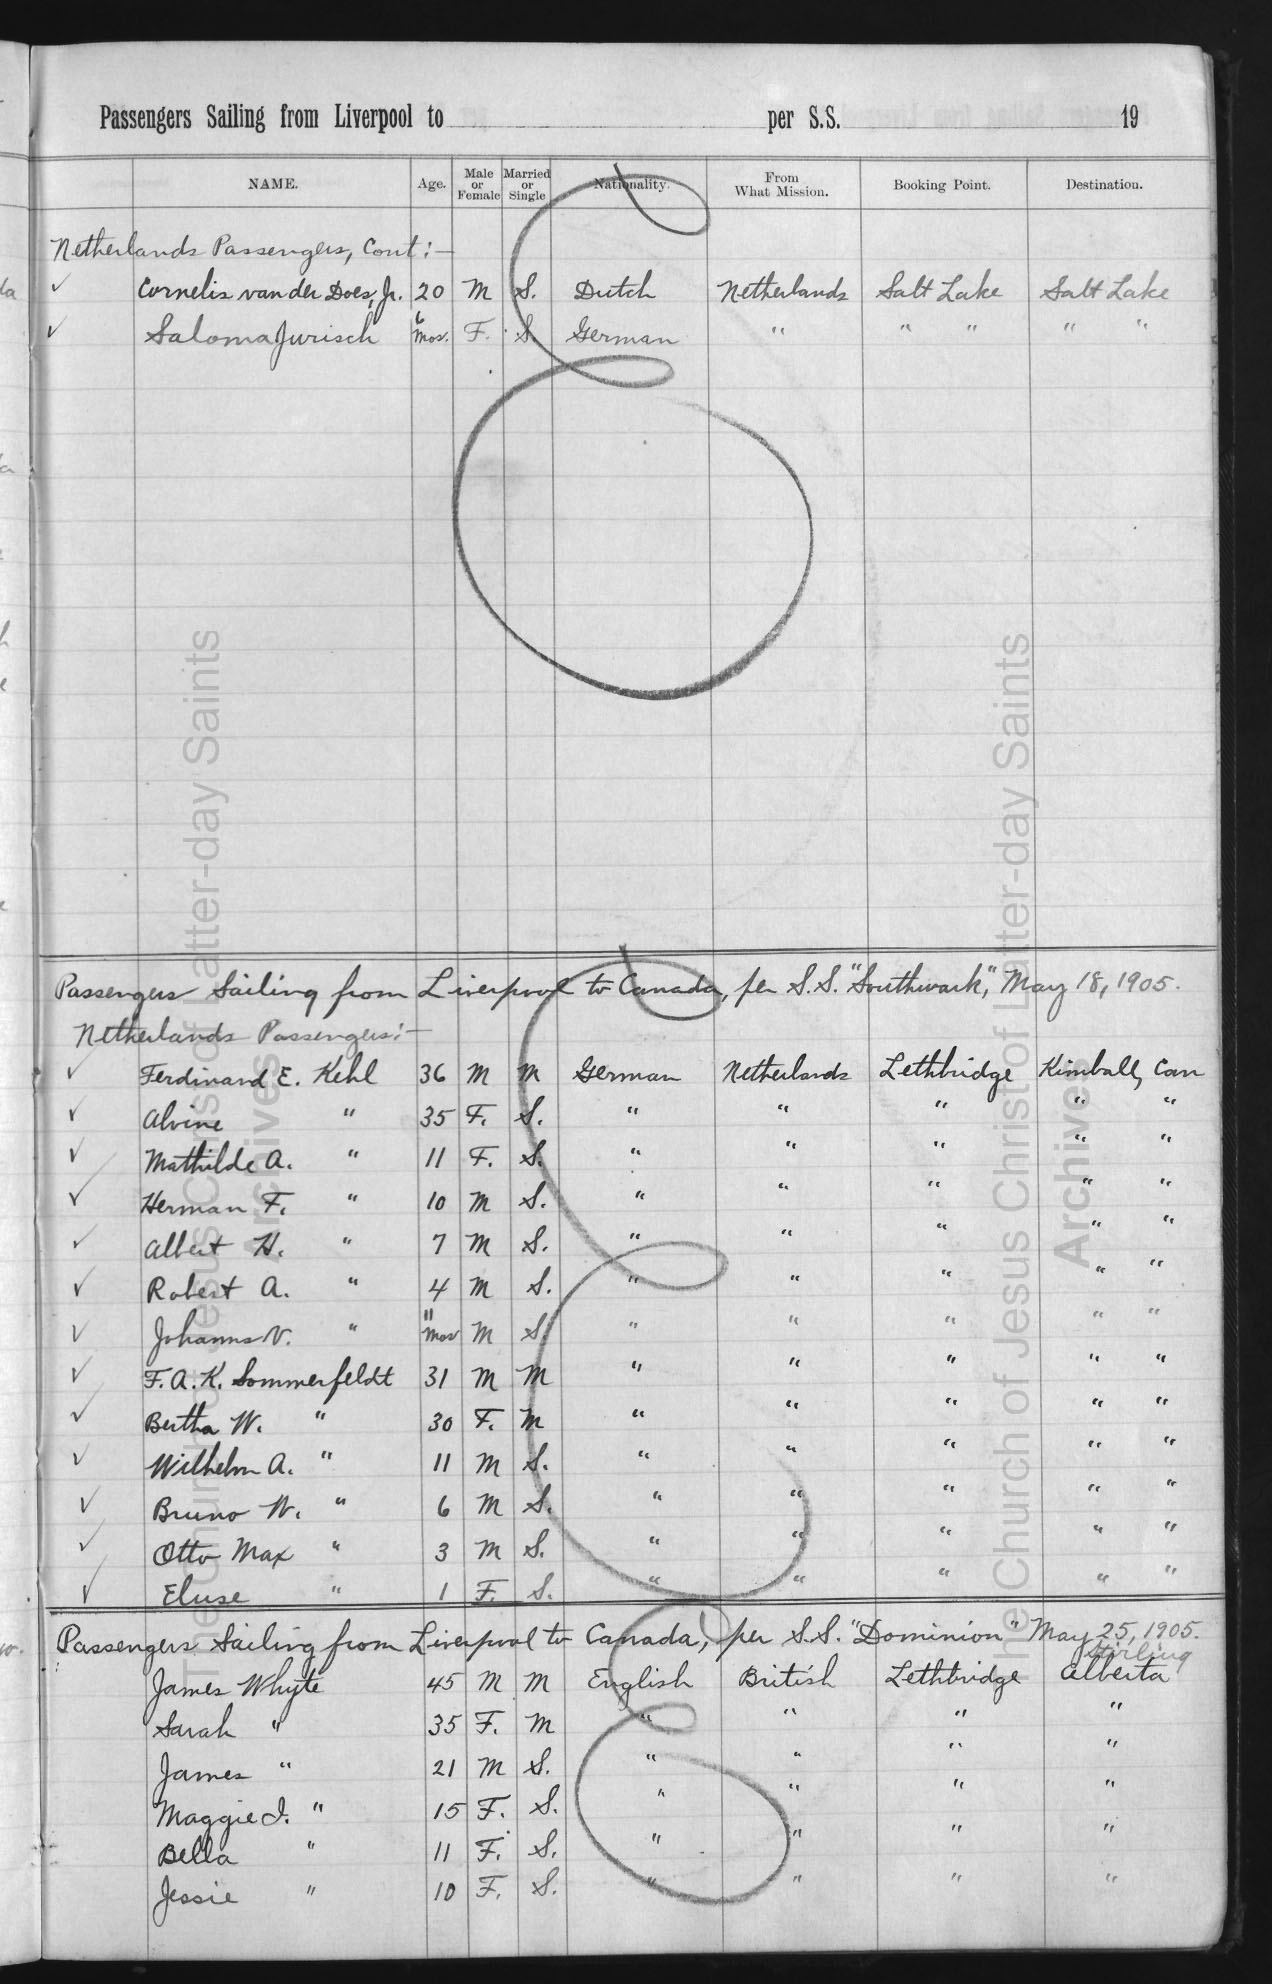 Passengers Sailing from Liverpool to per S.S. 19
NAME. Age. Male or Female Married or Single Nationality. From What Mission. Booking Point. Destination.
Netherlands Passengers, Cont:—
✓ Cornelis van der Does, Jr. 20 M S. Dutch Netherlands Salt Lake Salt Lake
✓ Saloma Jurisch 6 mos. F. S. German " " " " "
Passengers Sailing from Liverpool to Canada, per S.S. "Southwark", May 18, 1905.
Netherlands Passengers:—
✓ Ferdinand E. Kehl 36 M M German Netherlands Lethbridge Kimball, Can
✓ Alvine " 35 F. S. " " " " "
✓ Mathilde A. " 11 F. S. " " " " "
✓ Herman F. " 10 M S. " " " " "
✓ Albert H. " 7 M S. " " " " "
✓ Robert A. " 4 M S. " " " " "
✓ Johanns V. " 11 mos M S. " " " " "
✓ F. A. K. Sommerfeldt 31 M M " " " " "
✓ Bertha W. " 30 F. M " " " " "
✓ Wilhelm A. " 11 M S. " " " " "
✓ Bruno W. " 6 M S. " " " " "
✓ Otto Max " 3 M S. " " " " "
✓ Eluse " 1 F. S. " " " " "
Passengers Sailing from Liverpool to Canada, per S.S. "Dominion" May 25, 1905.
Stirling
James Whyte 45 M M English British Lethbridge Alberta
Sarah " 35 F. M " " " "
James " 21 M S. " " " "
Maggie I. " 15 F. S. " " " "
Bella " 11 F. S. " " " "
Jessie " 10 F. S. " " " "
The Church of Jesus Christ of Latter-day Saints
Archives
The Church of Jesus Christ of Latter-day Saints
Archives